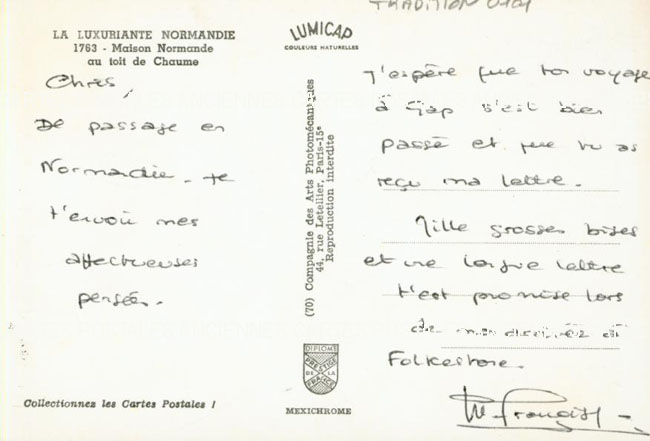 TRADITION 0101
LA LUXURIANTE NORMANDIE
1763 - Maison Normande
au toit de Chaume
LUMICAP
COULEURS NATURELLES
Chris,
De passage en
Normandie. Je
t'envoie mes
affectueuses
pensées.
(70) Compagnie des Arts Photomécaniques
44, rue Letellier, Paris-15e
Reproduction interdite
J'espère que ton voyage
à Gap s'est bien
passé et que tu as
reçu ma lettre.
Mille grosses bises
et une longue lettre
t'est promise lors
de mon arrivée à
Folkestone.
DIPLOME
PRESTIGE
DE LA
FRANCE
Collectionnez les Cartes Postales !
MEXICHROME